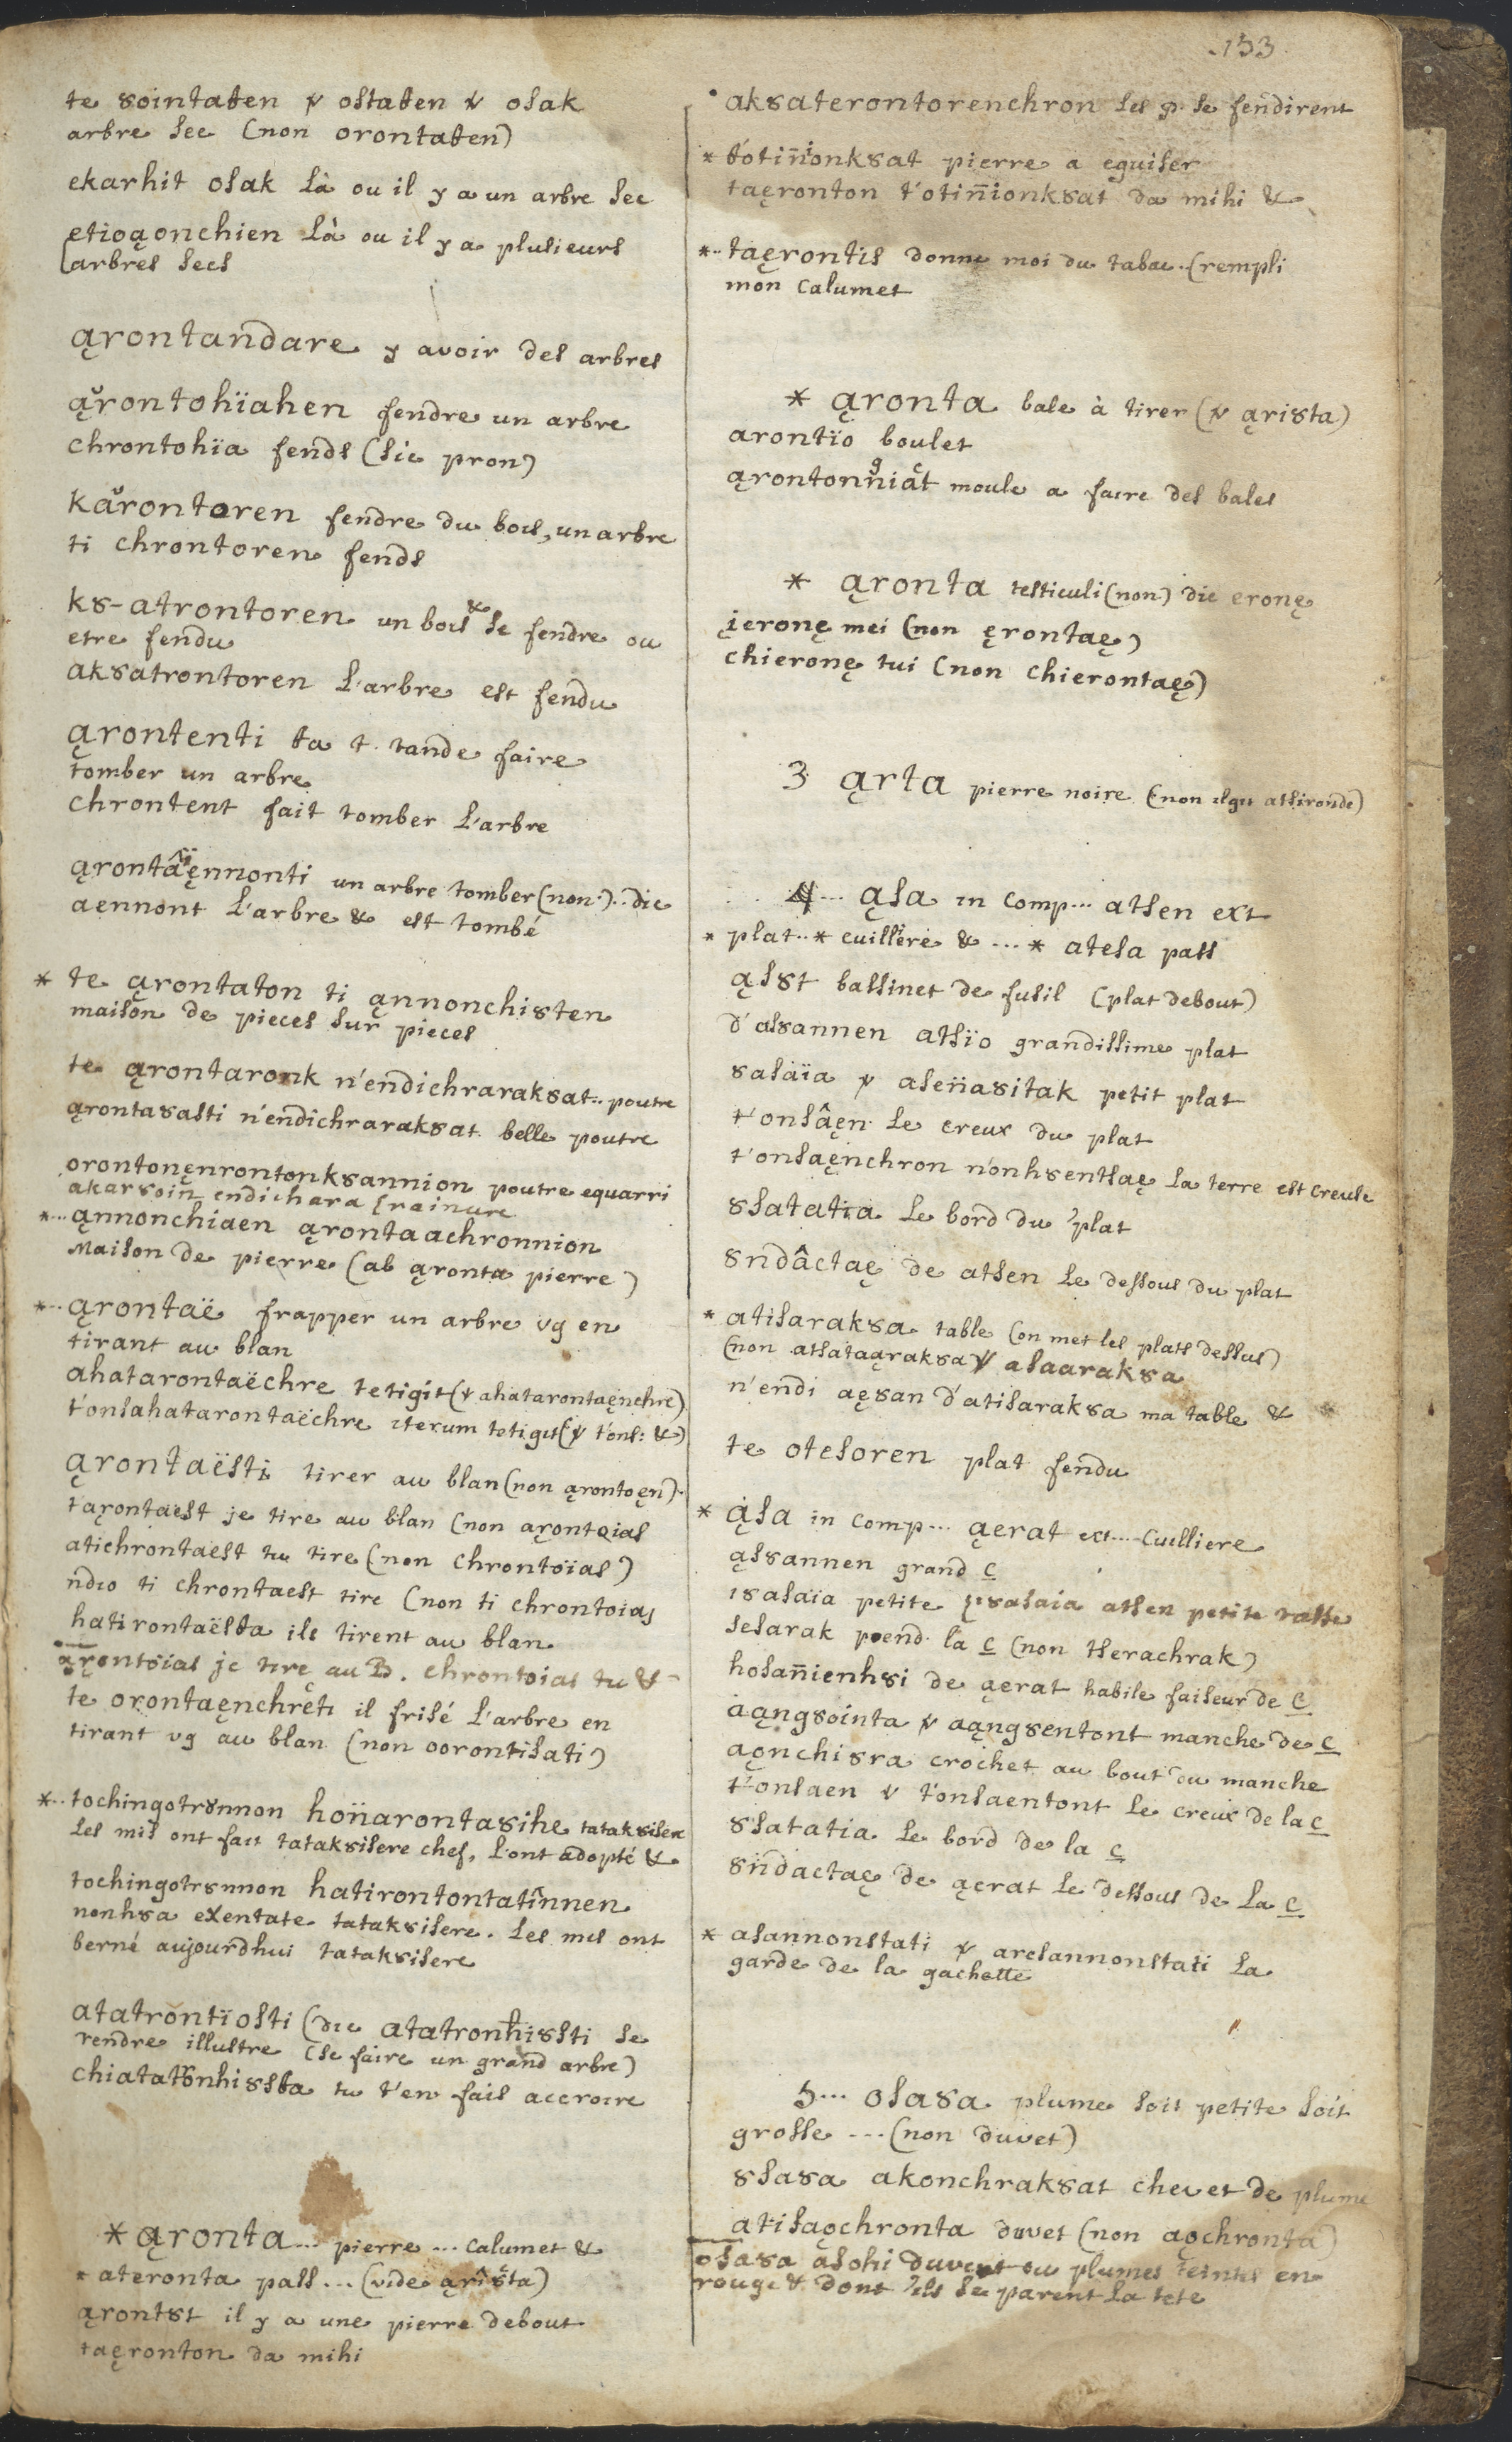 153
te 8ointaten v ostaten v osak
arbre sec (non orontaten)
ekarhit osak là ou il y a un arbre sec
etioąonchien Là ou il y a plusieurs
arbres secs
ąrontandare y avoir des arbres
ąrontohïahen fendre un arbre
chrontohia fends (sic pron)
karontoren fendre du bois, un arbre
ti chrontoren fends
k8-atrontoren un bois & se fendre ou
etre fendu
ak8atrontoren l'arbre est fendu
ąrontenti ta t. tande faire
tomber un arbre
chrontent fait tomber l'arbre
ąrontâęnnonti un arbre tomber (non.).. dic
aennont l'arbre & est tombé
* te ąrontaton ti ąnnonchi8ten
maison de pieces sur pieces
te ąrontaronk n'endichrarak8at.. poutre
ąronta8asti n'endichrarak8at. belle poutre
orontonęnrontonk8annion poutre equarri
akar8oin endichara frainure
*... ąnnonchiaen ąronta achronnion
Maison de pierre (ab ąronta pierre)
*.. ąrontaë frapper un arbre vg en
tirant au blan
ahatarontaëchre tetigit (v ahatarontaęnchre)
t'onsahatarontaëchre iterum tetigit (v t'ons: &)
ąrontaësti tirer au blan (non ąrontoęn).
t'aŗontaest je tire au blan (non aŗontoias
atichrontaest tu tire (non chrontoïas)
ndio ti chrontaest tire (non ti chrontoias
hatirontaësta ils tirent au blan
ąrontoias je tire au B. chrontoias tu &
te orontaęnchreti il frisé l'arbre en
tirant vg au blan (non oorontisati)
*.. tochingotr8nnon hoñaronta8ihe tatak8isere
Les mis ont fait tatak8isere chef, l'ont adopté &
tochingotr8nnon hatirontontatînnen
nonh8a exentate tatak8isere. Les mis ont
berné aujourdhui tatak8isere
atatrontïosti (dic atatronhi8sti se
rendre illustre (se faire un grand arbre)
chiatatonhi8sta tu t'en fais accroire
* ąronta... pierre ... calumet &
* ateronta pass ... (vide ąrî8ta)
ąront8t il y a une pierre debout
taęronton da mihi
ak8aterontorenchron les p. se fendirent
* t'otiñionk8at pierre a eguiser
taęronton t'otiñionk8at da mihi &
*.. taęrontis donne moi du tabac. (rempli
mon calumet
* ąronta bale à tirer (v ąri8ta)
arontïo boulet
ąrontonniat moule a faire des bales
* ąronta testiculi (non) dic eronę
įeronę mei (non ęrontaę)
chieronę tui (non chierontaę)
3 ąrta pierre noire (non
4... ąsa in comp... atsen ext
* plat.. * cuillere & ... * atesa pass
ąs8t bassinet de fusil (plat debout)
d'as8annen atsïo grandissime plat
8asaïa v aseña8itak petit plat
t'onsâęn le creux du plat
t'onsaęnchron n'onh8entsaę la terre est creuse
8satatia le bord du plat
8ndâctaę de atsen le dessous du plat
* atisarak8a table (on met les plats dessus)
(non atsataąrak8a v asaarak8a
n'endi aę8an d'atisarak8a ma table &
te otesoren plat fendu
* ąsa in comp... ąerat ext.... Cuilliere
ąs8annen grand c
i8asaïa petite 8asaia atsen petite tasse
sesarak prend la c (non tserachrak)
hosañienh8i de ąerat habile faiseur de c
aąng8ointa v aąng8entont manche de c
aonchi8ra crochet au bout du manche
t'onsaen v t'onsaentont le creux de la c
8satatia le bord de la c
8ndactaę de ąerat le dessous de la c
* asannonstati v aresannonstati la
garde de la gachette
5... osa8a plume soit petite soit
grosse ... (non duvet)
8sa8a akonchrak8at chevet de plume
atisaochronta duvet (non aochronta)
osa8a asohi duvet ou plumes teintes en
rouge & dont ils se parent la tete